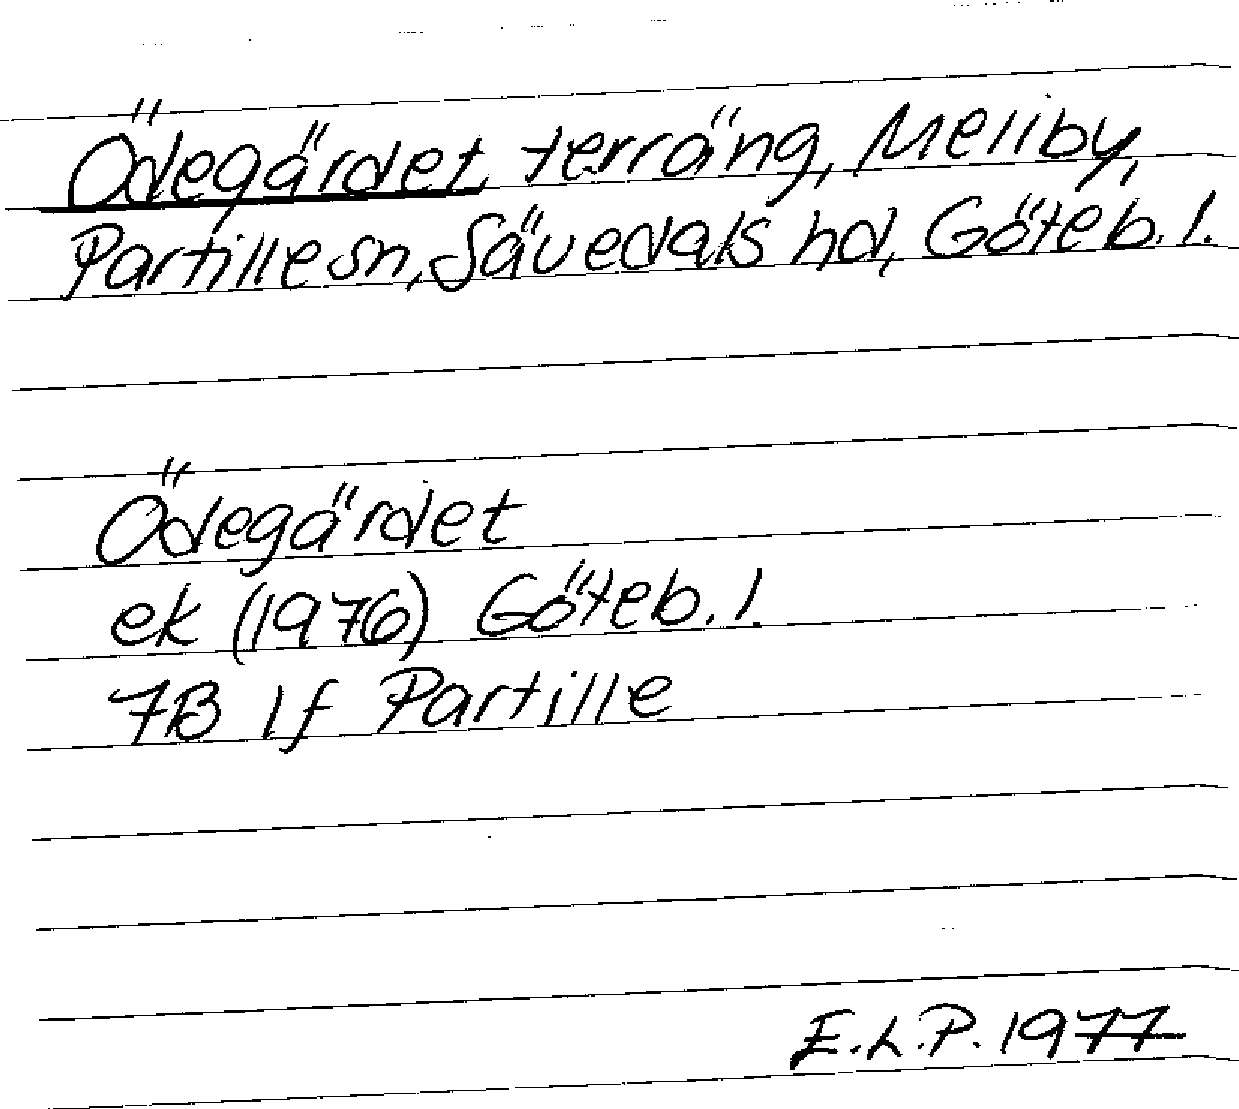 Ödegärdet, terräng, Mellby,
Partille sn, Sävedals hd, Göteb. l.
Ödegärdet
ek (1976) Göteb. l.
7B lf Partille
E.L.P. 1977